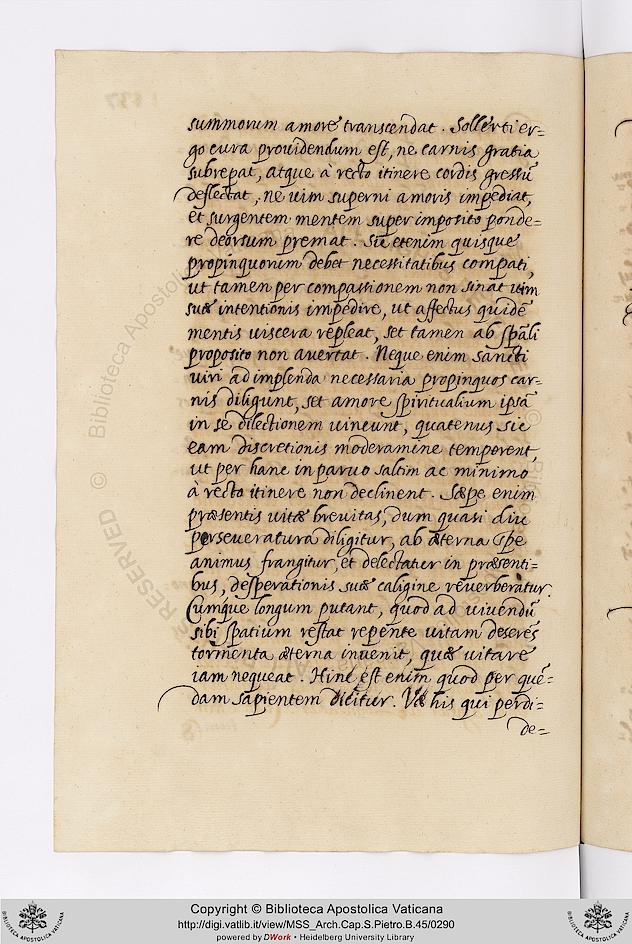 summorum amore transcendat. Sollerti er=
go cura prouidendum est, ne carnis gratia
subrepat, atque à recto itinere cordis gressū
deflectat, ne uim superni amoris impediat,
et surgentem mentem super imposito ponde=
re deorsum premat. Sic etenim quisque
propinquorum debet necessitatibus compati,
ut tamen per compassionem non sinat uim
suæ intentionis impedire, ut affectus quidē
mentis uiscera repleat, set tamen ab spāli
proposito non auertat. Neque enim sancti
uiri ad implenda necessaria propinquos car=
nis diligunt, set amore spiritualium ipsā
in se dilectionem uincunt, quatenus sic
eam discretionis moderamine temperent,
ut per hanc in paruo saltim ac minimo
à recto itinere non declinent. Sæpe enim
præsentis uitæ breuitas, dum quasi diu
perseueratura diligitur, ab æterna spe
animus frangitur, et delectatur in præsenti=
bus, desperationis suæ caligine reuerberatur.
Cumque longum putant, quod ad uiuendū
sibi spatium restat repente uitam deserēs
tormenta æterna inuenit, quæ uitare
iam nequeat. Hinc est enim quod per quē=
dam sapientem dicitur. Væ his qui perdi=
de=
© Biblioteca Apostolica
RESERVED
Copyright © Biblioteca Apostolica Vaticana
http://digi.vatlib.it/view/MSS_Arch.Cap.S.Pietro.B.45/0290
powered by DWork • Heidelberg University Library